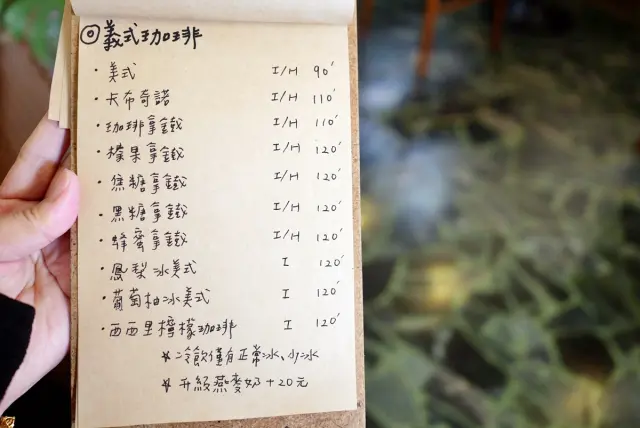 ◎義式珈琲
・美式 I/H 90'
・卡布奇諾 I/H 110'
・珈琲拿鐵 I/H 110'
・榛果拿鐵 I/H 120'
・焦糖拿鐵 I/H 120'
・黑糖拿鐵 I/H 120'
・蜂蜜拿鐵 I/H 120'
・鳳梨冰美式 I 120'
・葡萄柚冰美式 I 120'
・西西里檸檬珈琲 I 120'
*冷飲僅有正常冰、少冰
*升級燕麥奶+20元